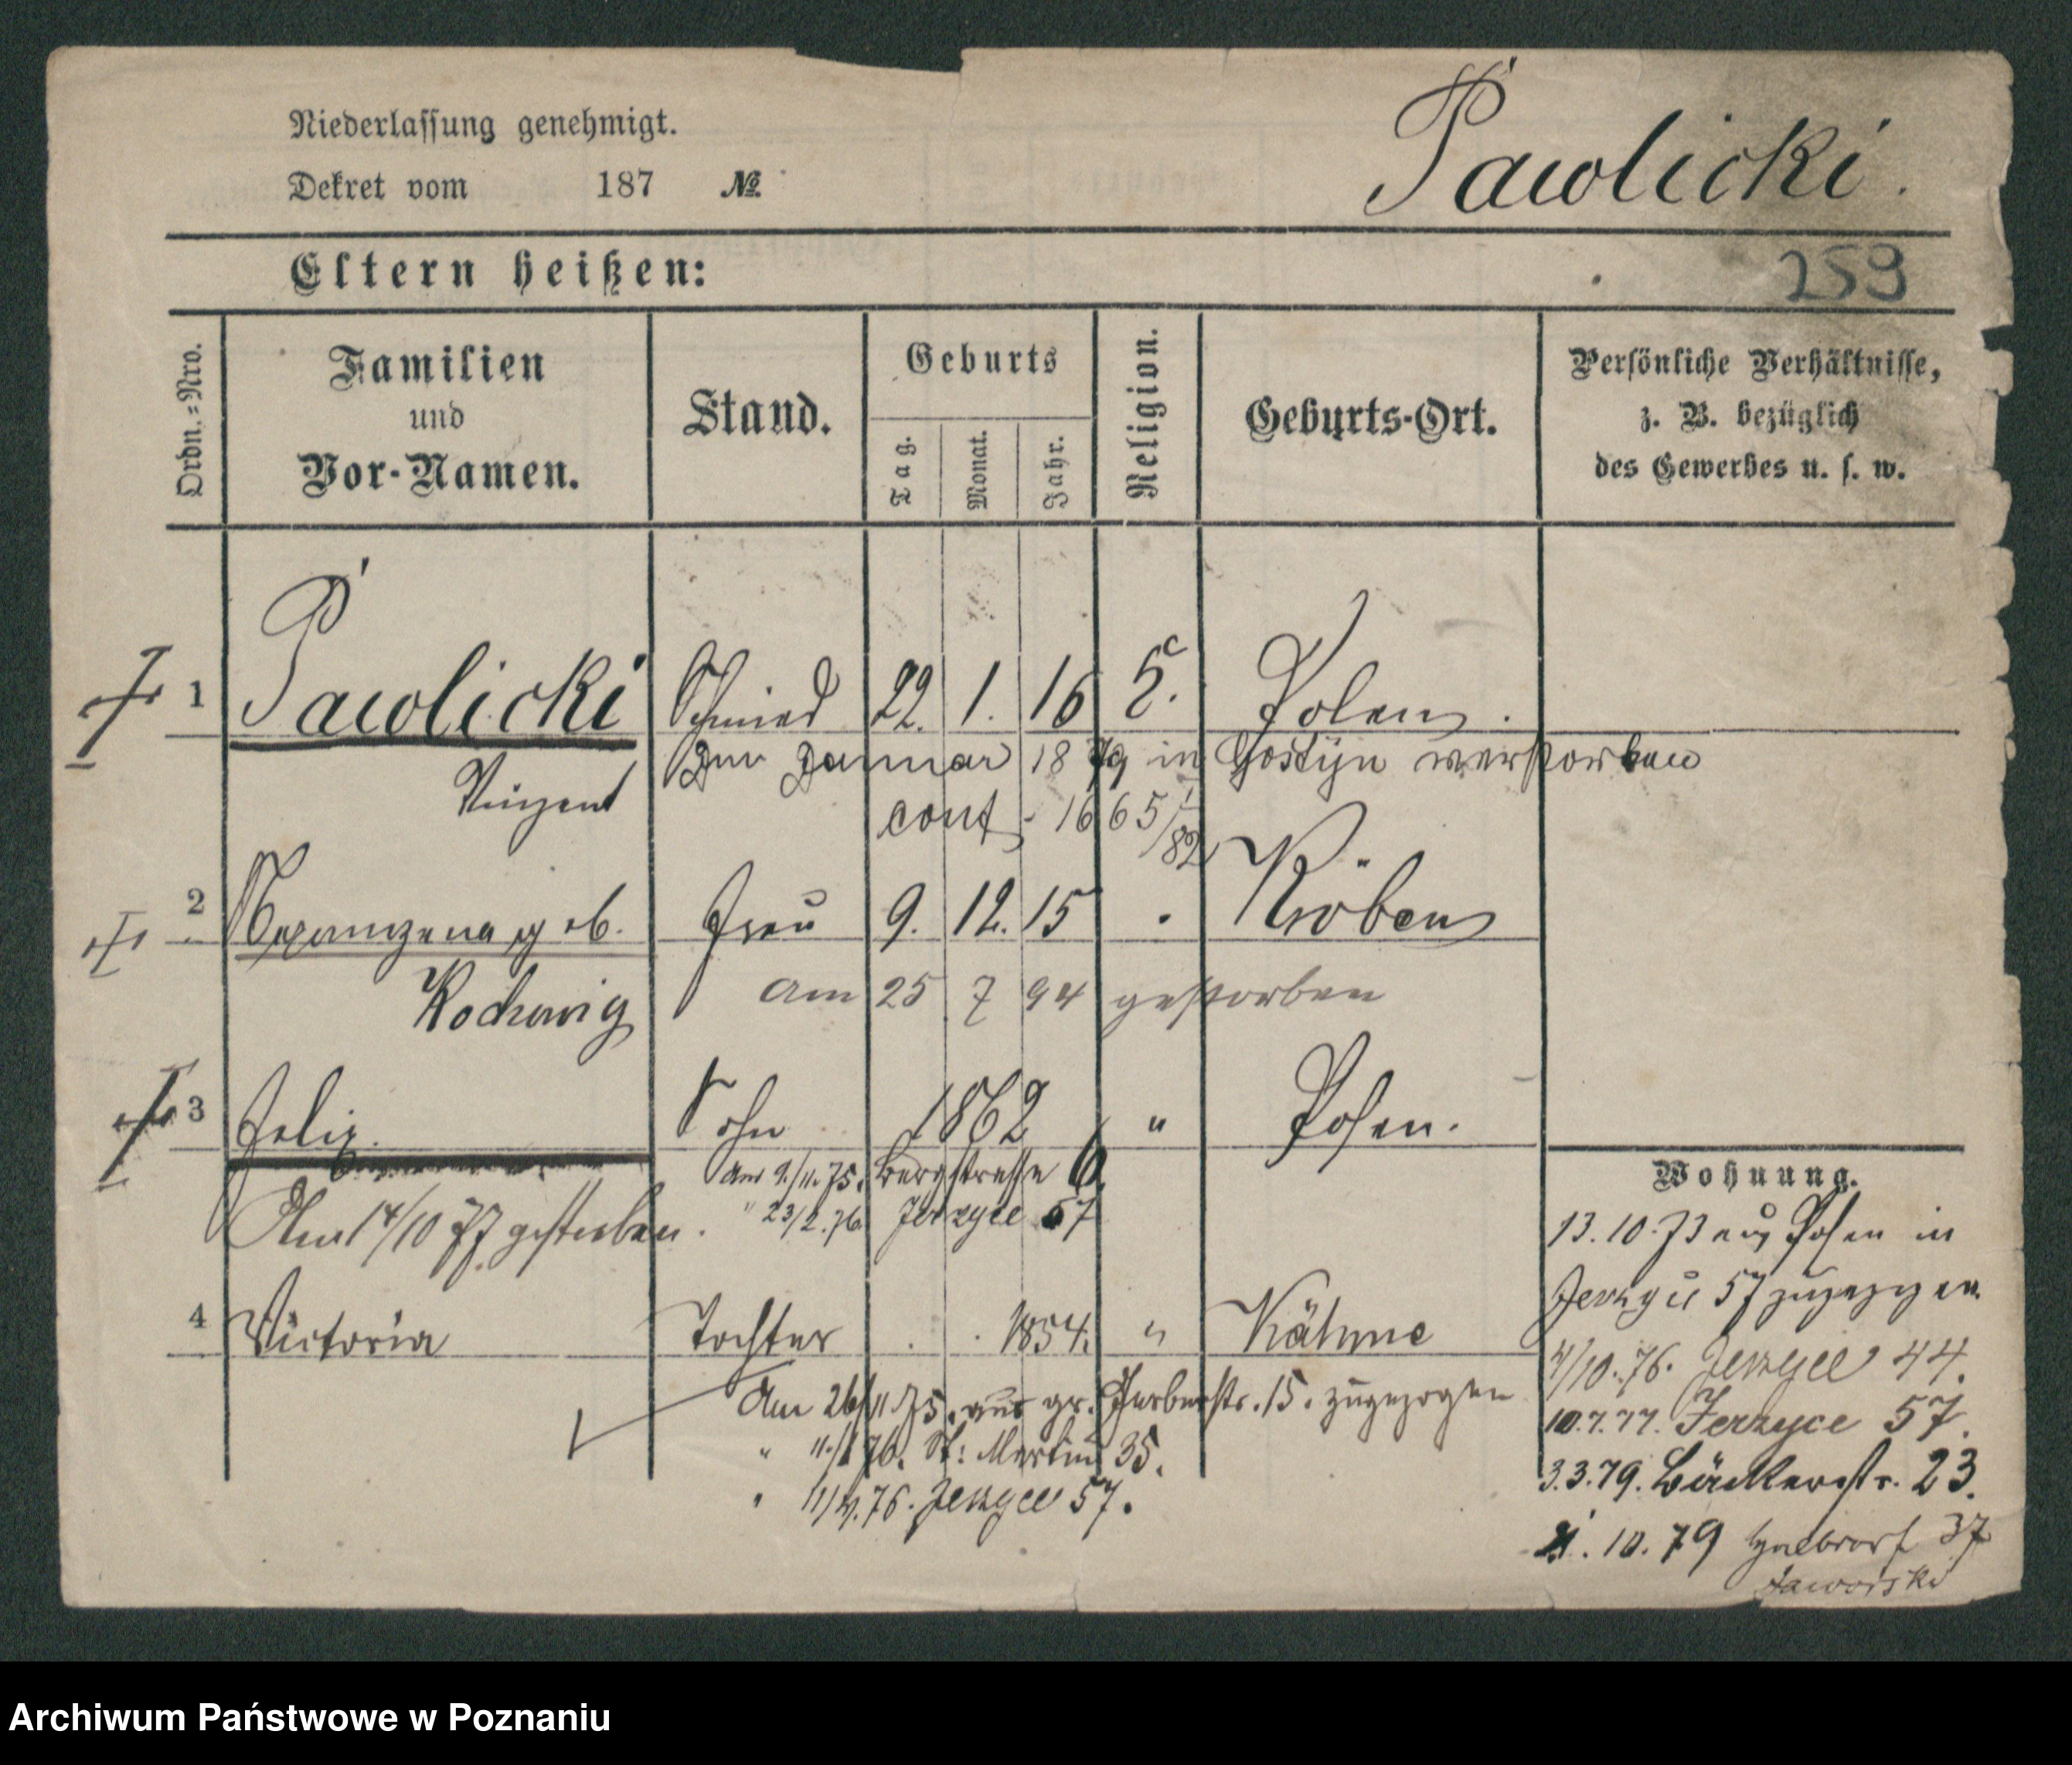 Niederlassung genehmigt.
Dekret vom 187 №
Pawlicki.
Eltern heißen:
259
Ordn.=Nro.
Familien und Vor-Namen.
Stand.
Geburts
Tag.
Monat.
Jahr.
Religion.
Geburts-Ort.
Persönliche Verhältnisse,
z. B. bezüglich
des Gewerbes u. s. w.
1 Pawlicki Schmied 22. 1. 16 Polen.
Vinzent
Im Januar 1879 in Gostyn verstorben
conf. 1665/82
2 geb. Frau 9. 12. 15 Kröben
am 25 7 94 gestorben
3 Felix. Sohn 1862 " Posen.
Am 9./11.75. Bergstrasse 6
" 23/2.76. Jerzyce 57
Am 14/10 77 gestorben.
4 Victoria Tochter . . 1854. " Kähme
Am 26/11 75. aus gr. Gerberstr. 15. zugezogen
" 76. St: Martin 35.
" 76. Jerzyce 57.
Wohnung.
13.10.73 aus Posen in
Jerzyce 57 zugezogen
4/10.76. Jerzyce 44.
10.7.77. Jerzyce 57.
3.3.79. Bäckerstr. 23.
10.79 37
Jaworski
Archiwum Państwowe w Poznaniu